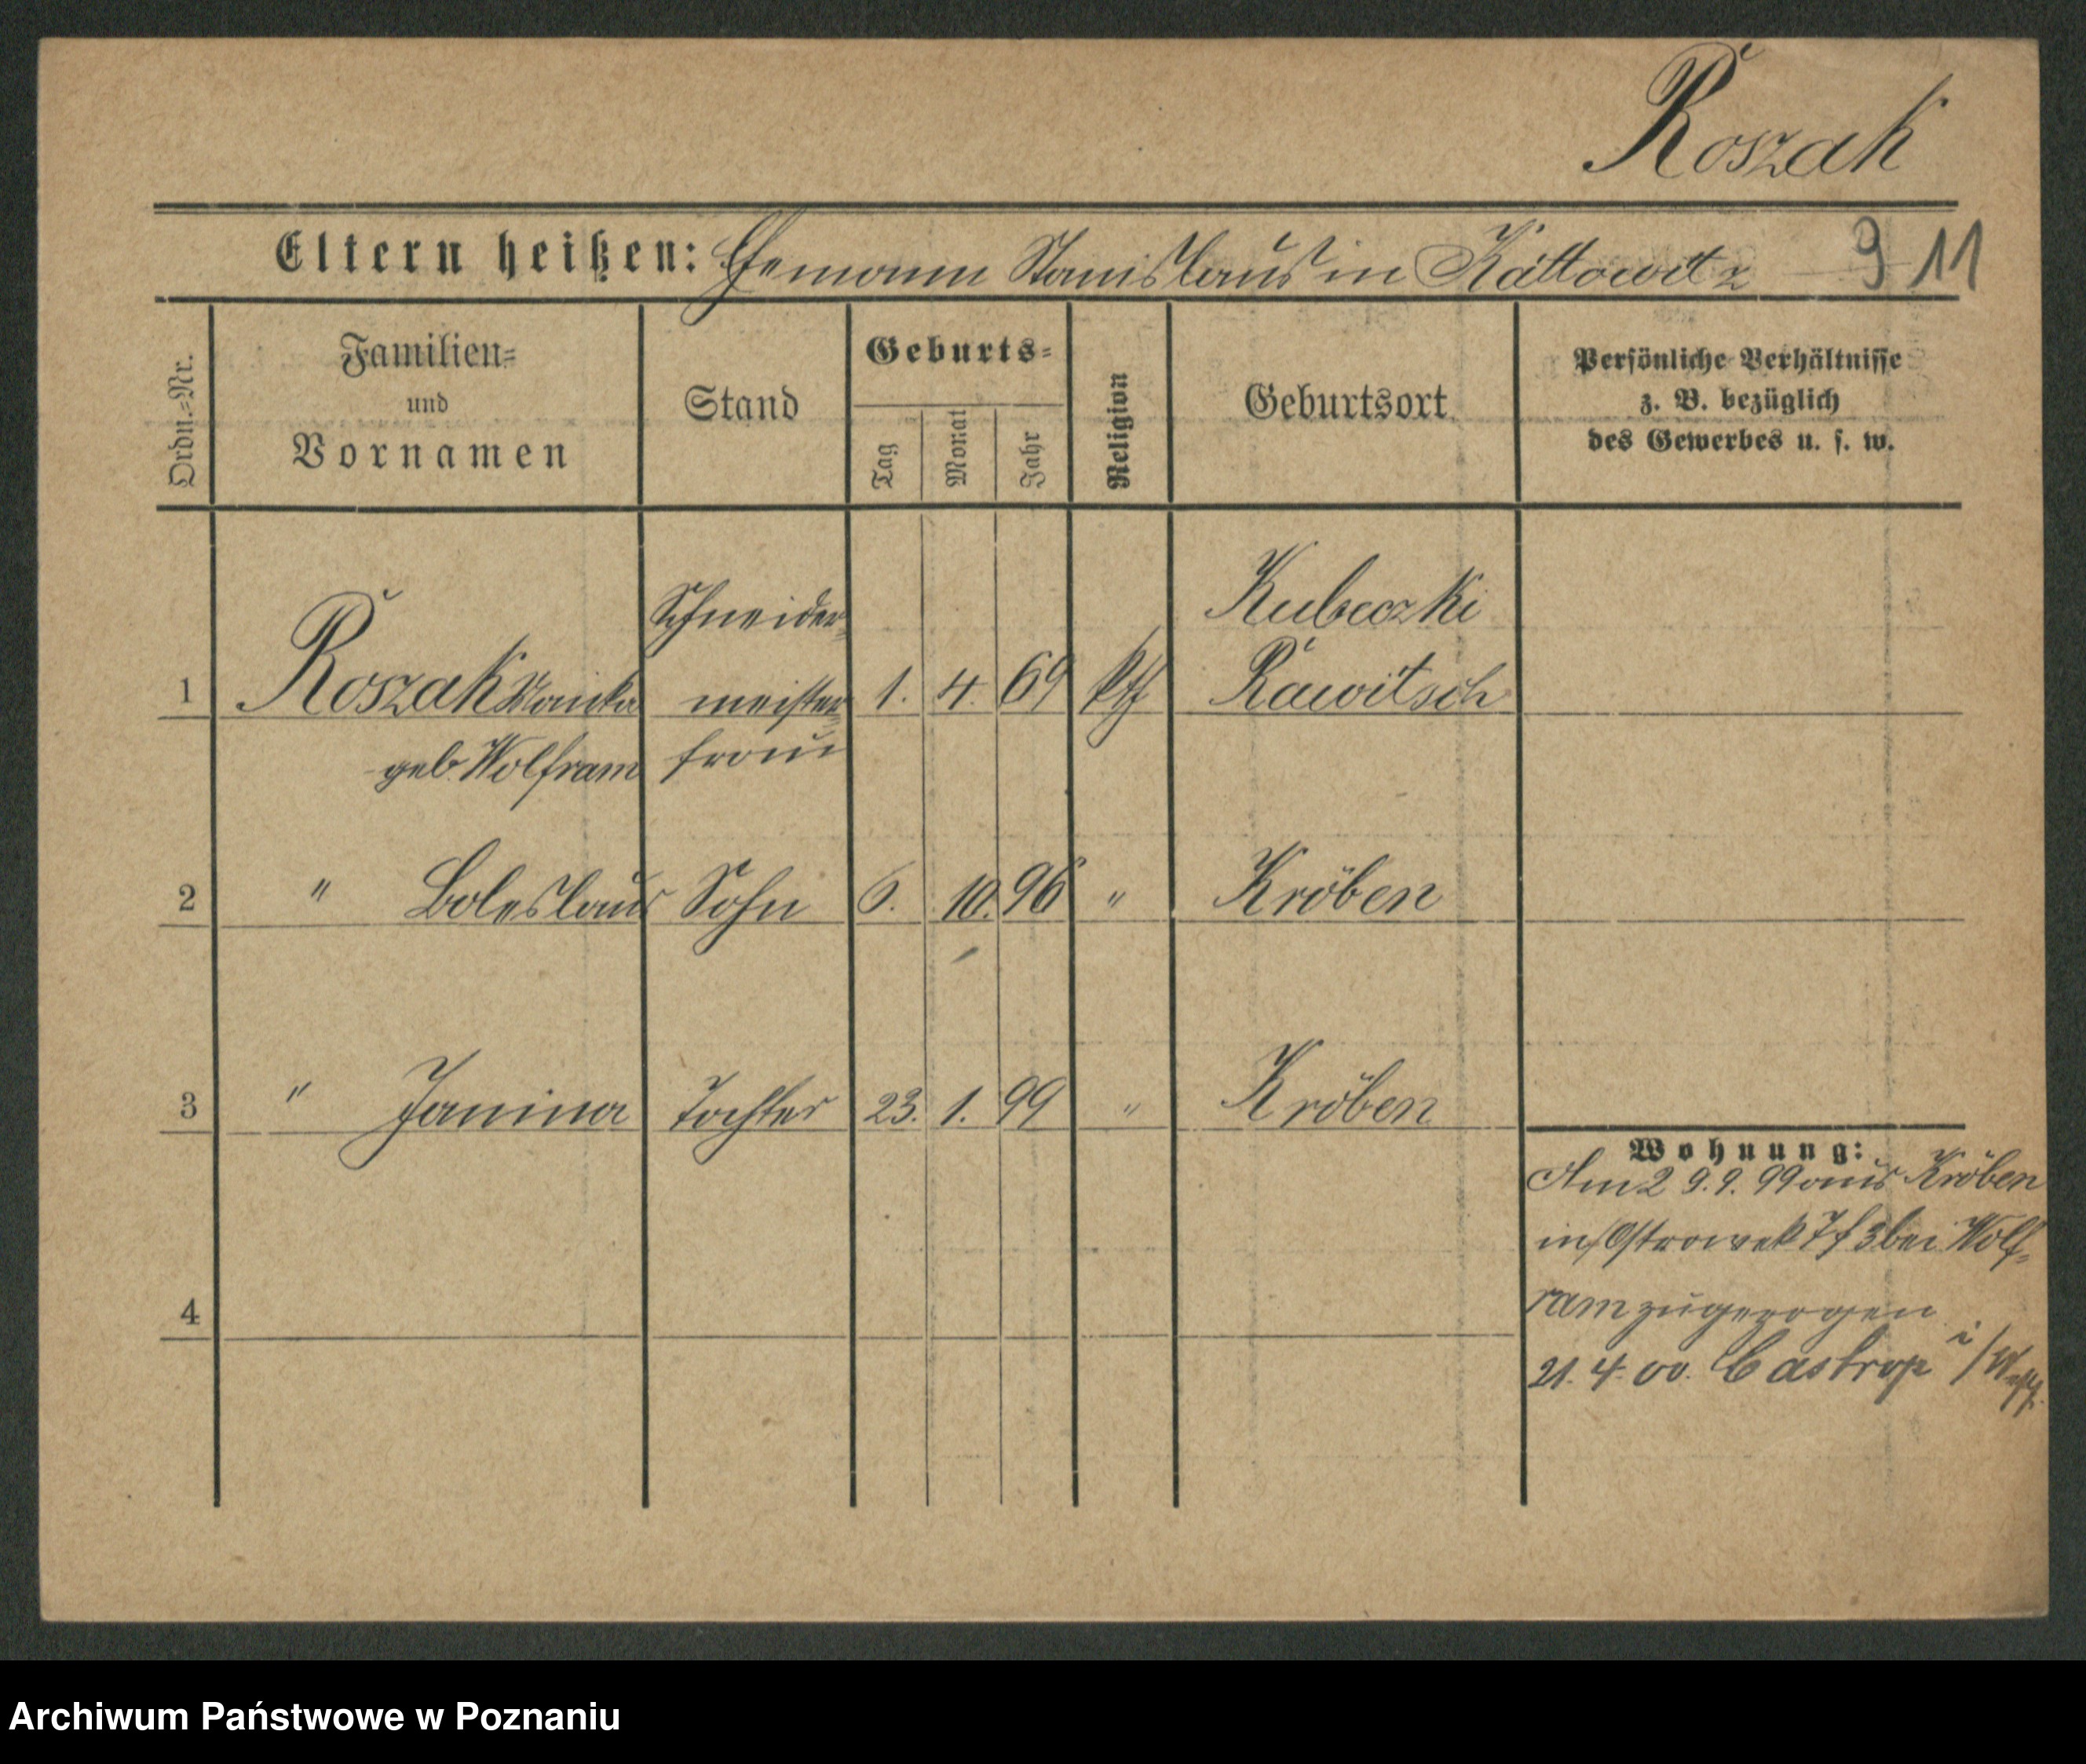 Roszak
Eltern heißen: Ehemann Stanislaus in Kattowitz 9 11
Ordn.=Nr.
Familien=
und
Vornamen
Stand
Geburts=
Tag
Monat
Jahr
Religion
Geburtsort
Persönliche Verhältnisse
z. B. bezüglich
des Gewerbes u. s. w.
Schneider- Kubeczki
1 Roszak meister 1. 4. 69 kth Rawitsch
geb. Wolfram frau
2 " Boleslaus Sohn 6. 10. 96 " Kröben
3 " Janina Tochter 23. 1. 99 " Kröben
4
Wohnung:
Am 29.9.99 aus Kröben
in Ostrowek 3 bei Wolf-
ram zugezogen
21.4.00. Castrop i/Westf.
Archiwum Państwowe w Poznaniu